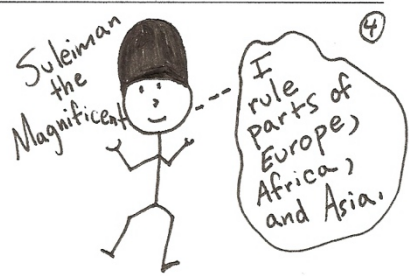 Suleiman
the
Magnificent
4
I
rule
parts of
Europe,
Africa,
and Asia.